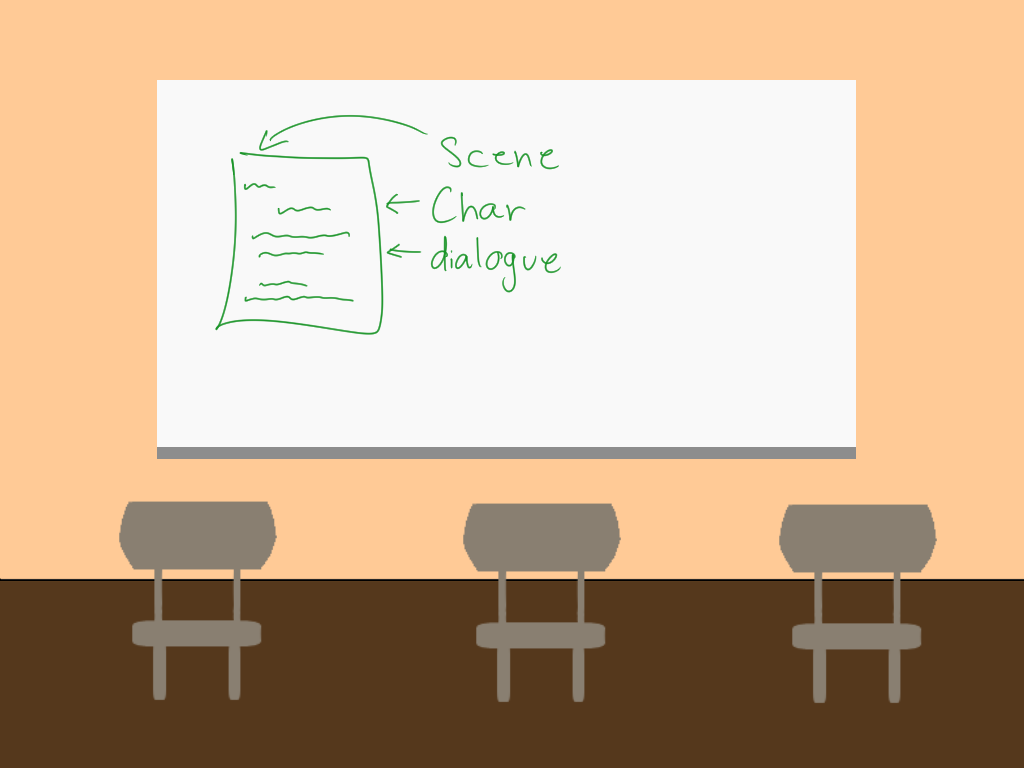 Scene
Char
dialogue